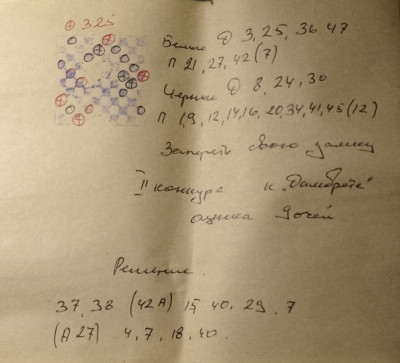 ⊕ 325
Белые D 3, 25, 36 47
П 21, 27, 42 (7)
Черные D 8, 24, 30
П 1,9, 12, 14, 16, 20, 34, 41, 45 (12)
Запереть свою дамку
II конкурс к "Дамбрете"
оценка 9 очей
Решение
37, 38 (42A) 15 40, 29, 7
(A 27) 4, 7, 18, 40.